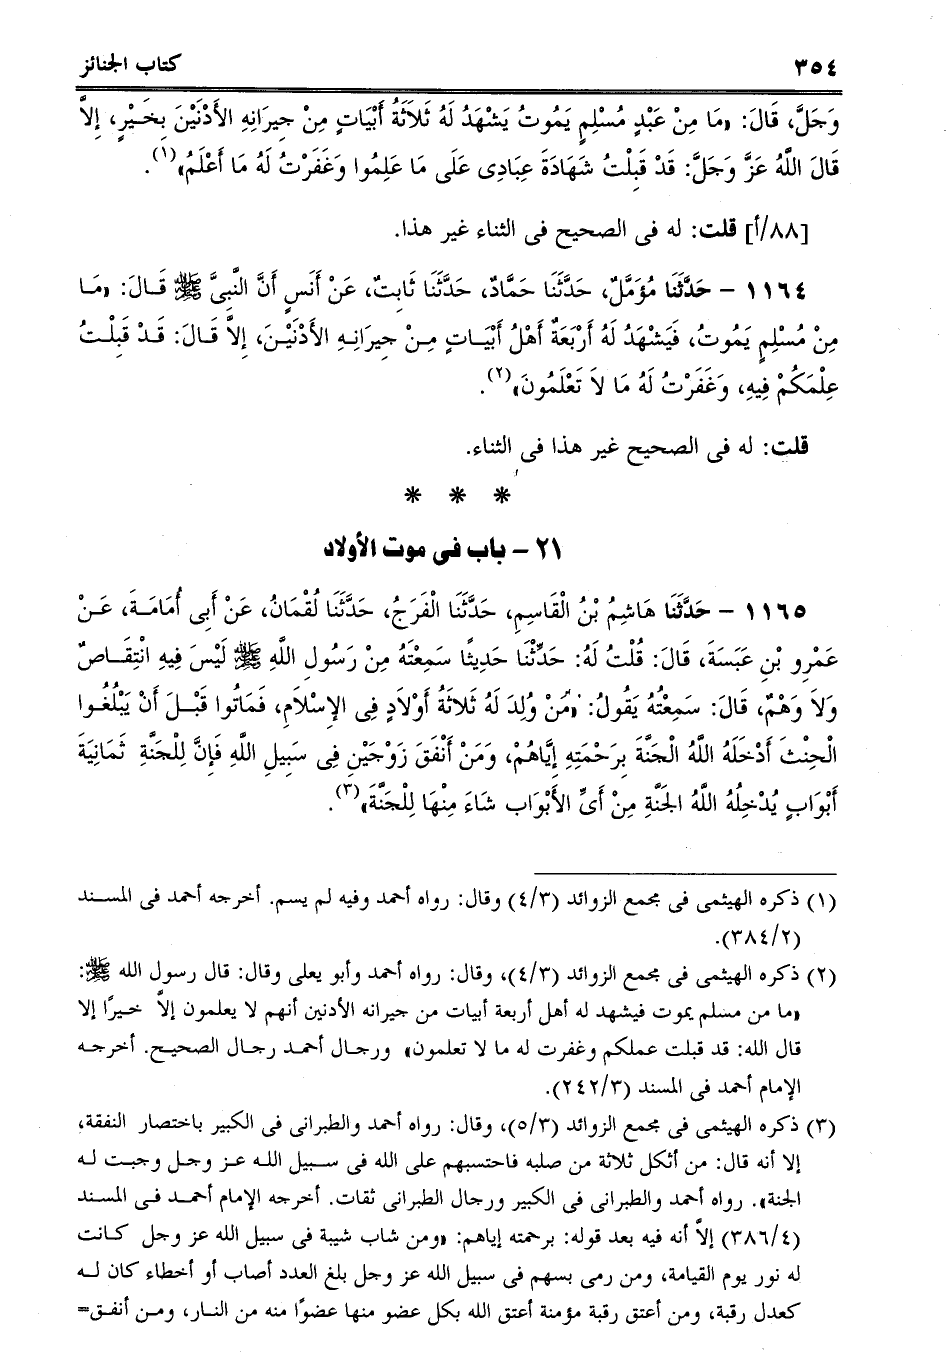 ٣٥٤ كتاب الجنائز
وَجَلَّ، قَالَ: «مَا مِنْ عَبْدٍ مُسْلِمٍ يَمُوتُ يَشْهَدُ لَهُ ثَلاَثَةُ أَبْيَاتٍ مِنْ جِيرَانِهِ الأَدْنَيْنَ بِخَيْرٍ، إِلاَّ
قَالَ اللَّهُ عَزَّ وَجَلَّ: قَدْ قَبِلْتُ شَهَادَةَ عِبَادِى عَلَى مَا عَلِمُوا وَغَفَرْتُ لَهُ مَا أَعْلَمُ»(١).
[٨٨/أ] قلت: له فى الصحيح فى الثناء غير هذا.
١١٦٤ - حَدَّثَنَا مُؤَمَّلٌ، حَدَّثَنَا حَمَّادٌ، حَدَّثَنَا ثَابِتٌ، عَنْ أَنَسٍ أَنَّ النَّبِىَّ ﷺ قَالَ: «مَا
مِنْ مُسْلِمٍ يَمُوتُ، فَيَشْهَدُ لَهُ أَرْبَعَةُ أَهْلُ أَبْيَاتٍ مِنْ جِيرَانِهِ الأَدْنَيْنَ، إِلاَّ قَالَ: قَدْ قَبِلْتُ
عِلْمَكُمْ فِيهِ، وَغَفَرْتُ لَهُ مَا لاَ تَعْلَمُونَ»(٢).
قلت: له فى الصحيح غير هذا فى الثناء.
* * *
٢١ - باب فى موت الأولاد
١١٦٥ - حَدَّثَنَا هَاشِمُ بْنُ الْقَاسِمِ، حَدَّثَنَا الْفَرَجُ، حَدَّثَنَا لُقْمَانُ، عَنْ أَبِى أُمَامَةَ، عَنْ
عَمْرِو بْنِ عَبَسَةَ، قَالَ: قُلْتُ لَهُ: حَدِّثْنَا حَدِيثًا سَمِعْتَهُ مِنْ رَسُولِ اللَّهِ ﷺ لَيْسَ فِيهِ انْتِقَاصٌ
وَلاَ وَهْمٌ، قَالَ: سَمِعْتُهُ يَقُولُ: «مَنْ وُلِدَ لَهُ ثَلاَثَةُ أَوْلاَدٍ فِى الإِسْلاَمِ، فَمَاتُوا قَبْلَ أَنْ يَبْلُغُوا
الْحِنْثَ أَدْخَلَهُ اللَّهُ الْجَنَّةَ بِرَحْمَتِهِ إِيَّاهُمْ، وَمَنْ أَنْفَقَ زَوْجَيْنِ فِى سَبِيلِ اللَّهِ فَإِنَّ لِلْجَنَّةِ ثَمَانِيَةَ
أَبْوَابٍ يُدْخِلُهُ اللَّهُ الجَنَّةِ مِنْ أَىِّ الأَبْوَاب شَاءَ مِنْهَا لِلْجَنَّةَ»(٣).
(١) ذكره الهيثمى فى مجمع الزوائد (٤/٣) وقال: رواه أحمد وفيه لم يسم. أخرجه أحمد فى المسند
(٣٨٤/٢).
(٢) ذكره الهيثمى فى مجمع الزوائد (٤/٣)، وقال: رواه أحمد وأبو يعلى وقال: قال رسول الله ﷺ:
«ما من مسلم يموت فيشهد له أهل أربعة أبيات من جيرانه الأدنين أنهم لا يعلمون إلاَّ خيرًا إلا
قال الله: قد قبلت عملكم وغفرت له ما لا تعلمون» ورجال أحمد رجال الصحيح. أخرجه
الإمام أحمد فى المسند (٢٤٢/٣).
(٣) ذكره الهيثمى فى مجمع الزوائد (٥/٣)، وقال: رواه أحمد والطبرانى فى الكبير باختصار النفقة،
إلا أنه قال: من أثكل ثلاثة من صلبه فاحتسبهم على الله فى سبيل الله عز وجل وجبت له
الجنة». رواه أحمد والطبرانى فى الكبير ورجال الطبرانى ثقات. أخرجه الإمام أحمد فى المسند
(٣٨٦/٤) إلاَّ أنه فيه بعد قوله: برحمته إياهم: «ومن شاب شيبة فى سبيل الله عز وجل كانت
له نور يوم القيامة، ومن رمى بسهم فى سبيل الله عز وجل بلغ العدد أصاب أو أخطاء كان له
كعدل رقبة، ومن أعتق رقبة مؤمنة أعتق الله بكل عضو منها عضوًا منه من النار، ومن أنفق=